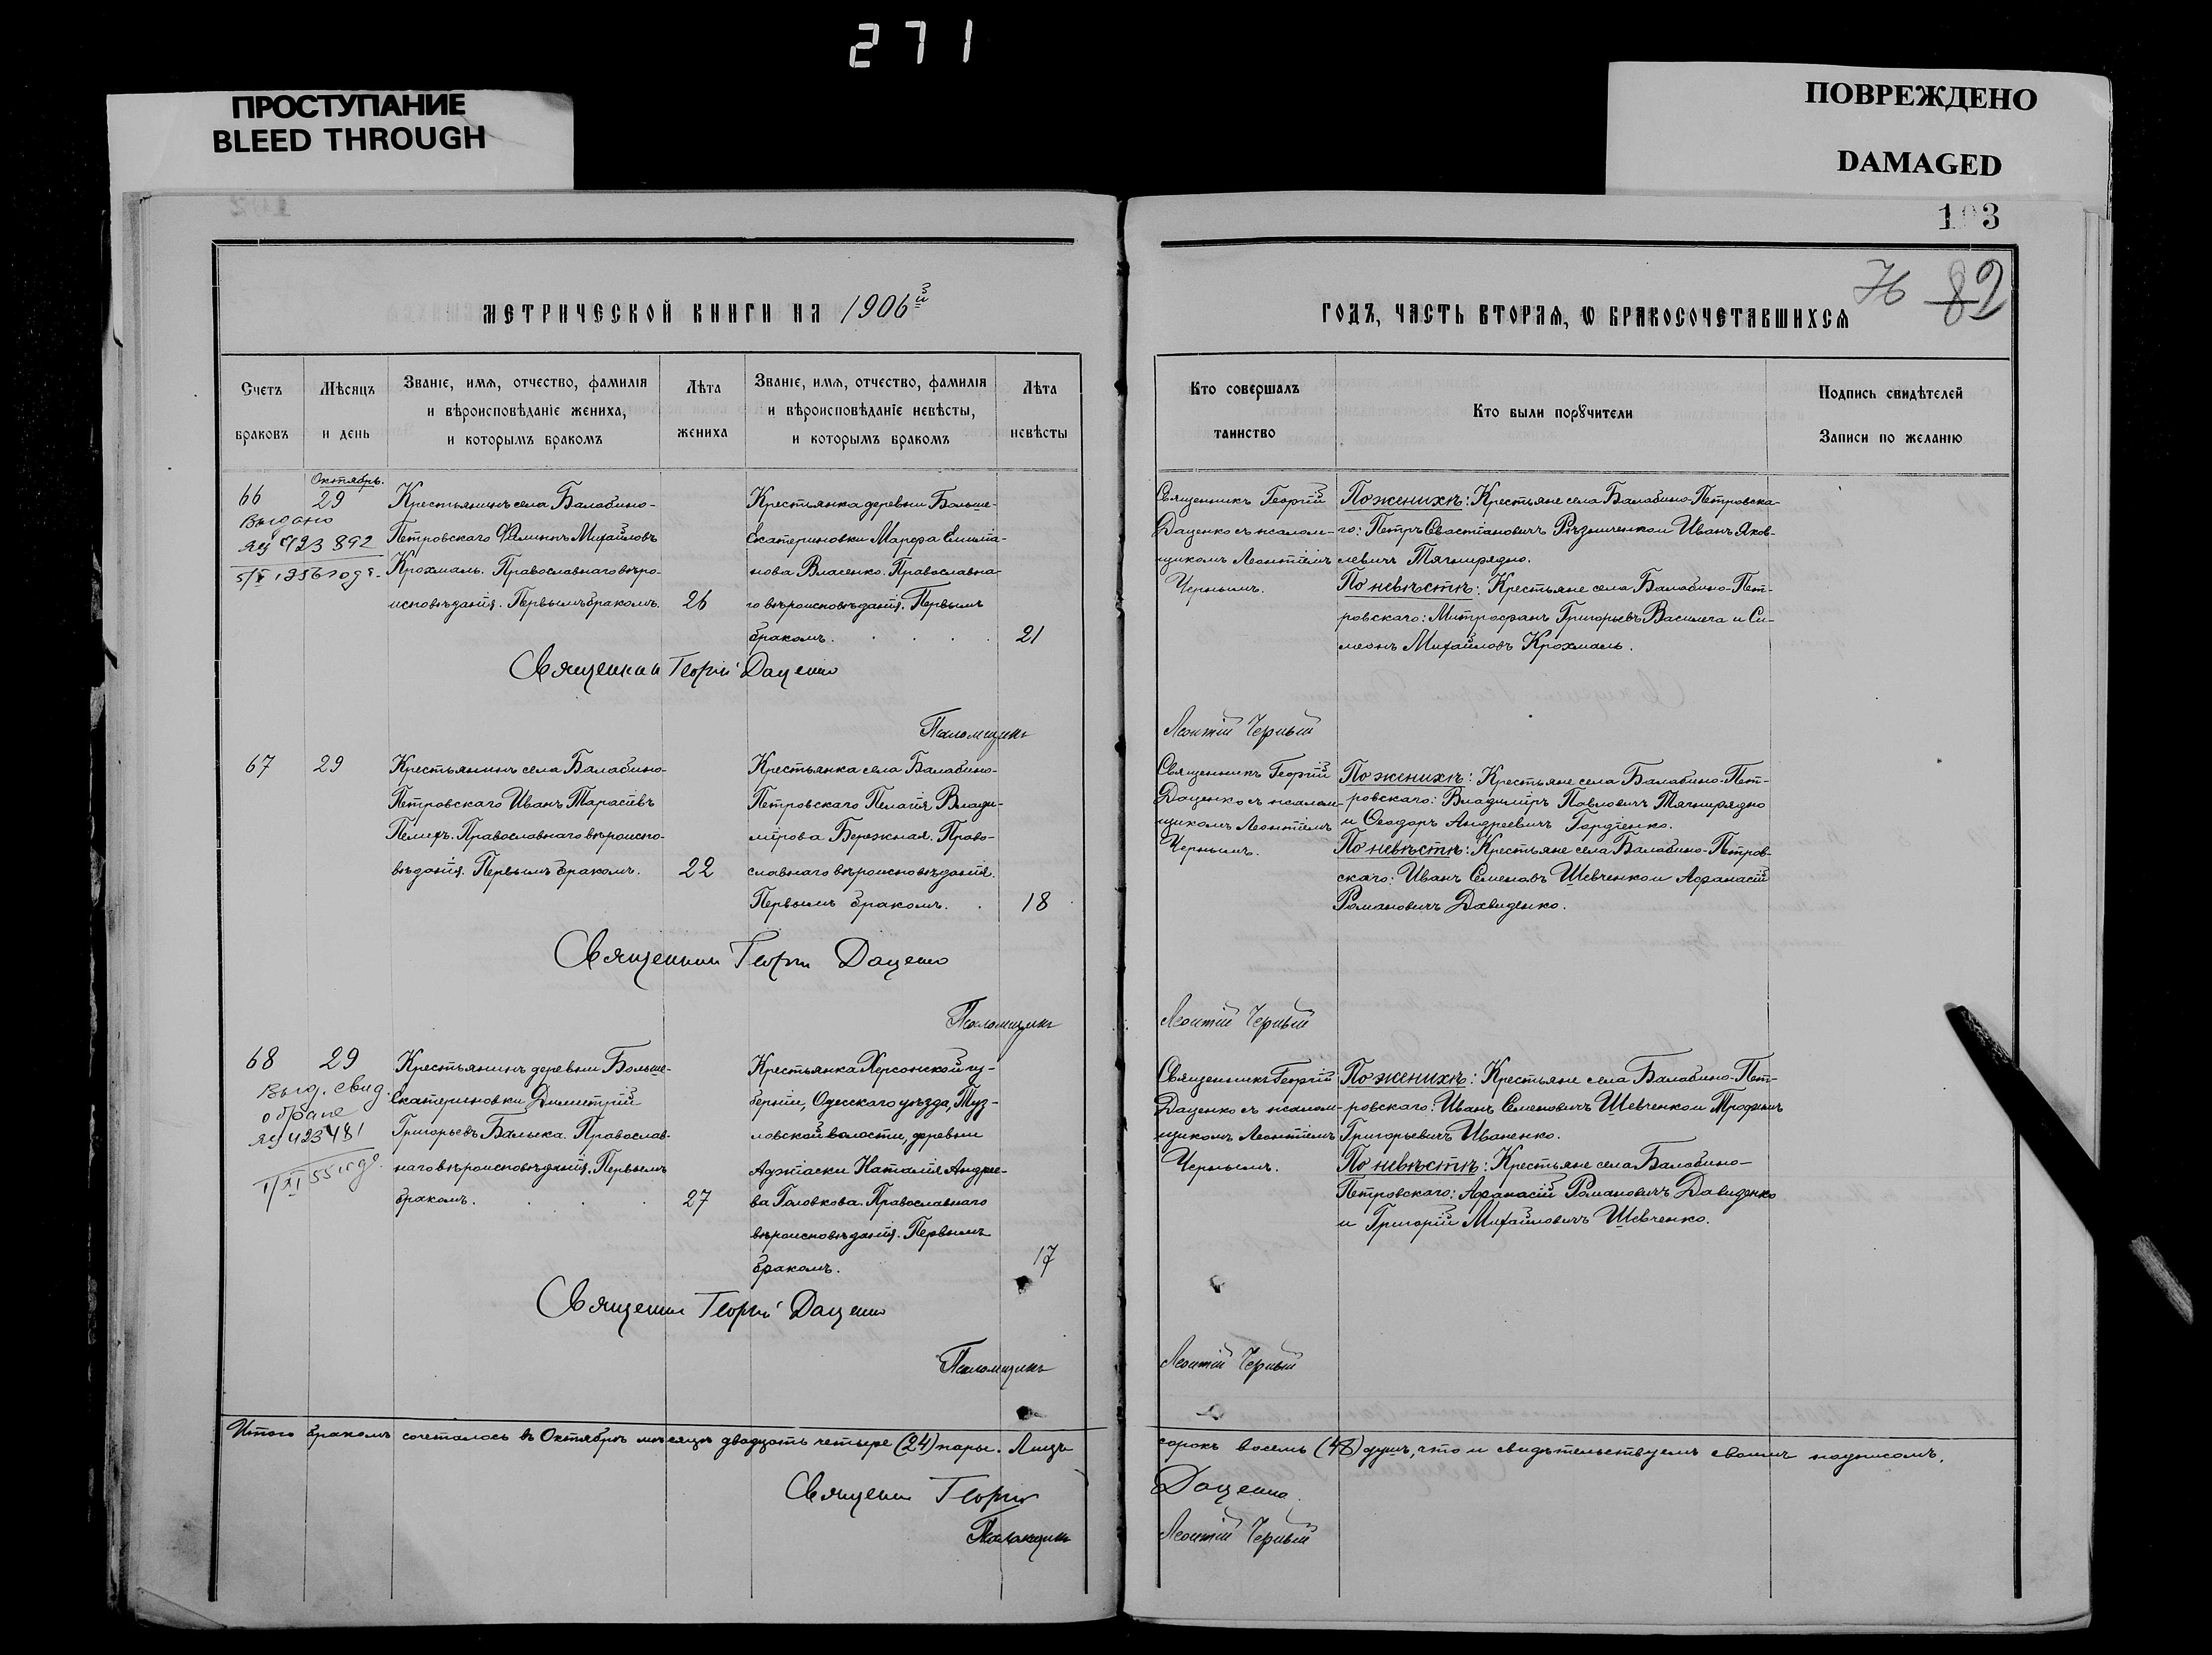 271
ПРОСТУПАНИЕ
BLEED THROUGH
ПОВРЕЖДЕНО
DAMAGED
103
82
МЕТРИЧЕСКОЙ КНИГИ НА 1906й
Счетъ браковъ
Мѣсяцъ и день
Званіе, имѧ, отчество, фамилія
и вѣроисповѣданіе жениха,
и которымъ бракомъ
Лѣта жениха
Званіе, имѧ, отчество, фамилія
и вѣроисповѣданіе невѣсты,
и которымъ бракомъ
Лѣта невѣсты
66
Выдано
ЯЦ 423892
Октябрь.
29
Крестьянинъ села Балабино-
Петровскаго Филиппъ Михайловъ
Крохмаль. Православнаго вѣро-
исповѣданія. Первымъ бракомъ.
26
Крестьянка деревни Больше-
Екатериновки Марѳа
Власенко. Православна-
го вѣроисповѣданія. Первымъ
бракомъ.
21
Священникъ Георгій Даценко
Псаломщикъ
67
29
Крестьянинъ села Балабино-
Петровскаго Иванъ Тарасіевъ
Православнаго вѣроиспо-
вѣданія. Первымъ бракомъ.
22
Крестьянка села Балабино-
Петровскаго Пелагія Влади-
мірова Бережная. Право-
славнаго вѣроисповѣданія.
Первымъ бракомъ.
18
Священникъ Георгій Даценко
Псаломщикъ
68
Выд. свид.
о браке
ЯЦ 423481
29
Крестьянинъ деревни Больше-
Екатериновки Димитрій
Григорьевъ Балыка. Православ-
наго вѣроисповѣданія. Первымъ
бракомъ.
27
Крестьянка Херсонской гу-
берніи, Одесскаго уѣзда, Туз-
ловской волости, деревни
Аджіаски Наталія Андрее-
ва Головкова. Православнаго
вѣроисповѣданія. Первымъ
бракомъ.
17
Священникъ Георгій Даценко
Псаломщикъ
Итого бракомъ сочеталось въ Октябрѣ мѣсяцѣ двадцать четыре (24) пары. Лицъ
Священникъ Георгій
Псаломщикъ
ГОДЪ, ЧАСТЬ ВТОРАѦ, Ѡ БРАКОСОЧЕТАВШИХСѦ
Кто совершалъ таинство
Кто были порꙋчители
Подпись свидѣтелей
Записи по желанію
Священникъ Георгій
Даценко съ псалом-
щикомъ Леонтіемъ
Чернымъ.
По женихѣ: Крестьяне села Балабино-Петровска-
го: Петръ Севастіановичъ Рѣзниченко и Иванъ Яков-
левичъ Тягнирядно.
По невѣстѣ: Крестьяне села Балабино-Пет-
ровскаго: Митрофанъ Григорьевъ Василега и Си-
меонъ Михайловъ Крохмаль.
Леонтій Черный
Священникъ Георгій
Даценко съ псалом-
щикомъ Леонтіемъ
Чернымъ.
По женихѣ: Крестьяне села Балабино-Пет-
ровскаго: Владиміръ Павловичъ Тягнирядно
и Ѳеодоръ Андреевичъ Гордіенко.
По невѣстѣ: Крестьяне села Балабино-Петров-
скаго: Иванъ Семеновъ Шевченко и Афанасій
Романовичъ Давиденко.
Леонтій Черный
Священникъ Георгій
Даценко съ псалом-
щикомъ Леонтіемъ
Чернымъ.
По женихѣ: Крестьяне села Балабино-Пет-
ровскаго: Иванъ Семеновичъ Шевченко и Трофимъ
Григорьевичъ Иваненко.
По невѣстѣ: Крестьяне села Балабино-
Петровскаго: Афанасій Романовичъ Давиденко
и Григорій Михайловичъ Шевченко.
Леонтій Черный
сорокъ восемь (48) душъ, что и свидѣтельствуемъ своимъ подписомъ.
Даценко
Леонтій Черный